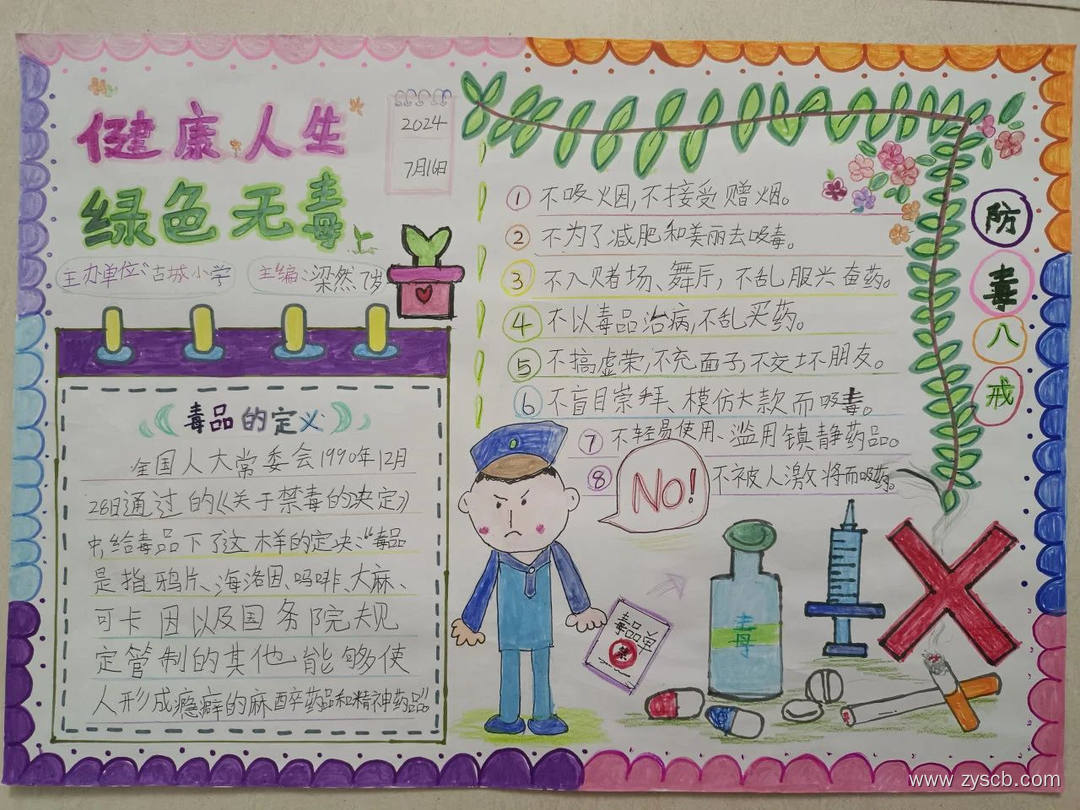 健康人生
绿色无毒
2024
7月16日
主办单位:古城小学 主编:梁然 7岁
毒品的定义
全国人大常委会1990年12月
28日通过的《关于禁毒的决定》
中,给毒品下了这样的定决:“毒品
是指鸦片、海洛因、吗啡、大麻、
可卡因以及国务院规
定管制的其他能够使
人形成瘾癖的麻醉药品和精神药品”。
①不吸烟,不接受赠烟。
②不为了减肥和美丽去吸毒。
③不入赌场、舞厅,不乱服兴奋药。
④不以毒品治病,不乱买药。
⑤不搞虚荣,不充面子,不交坏朋友。
⑥不盲目崇拜、模仿大款而吸毒。
⑦不轻易使用、滥用镇静药品。
⑧不被人激将而吸药。
防
毒
八
戒
NO!
毒品单
禁
毒
www.zyscb.com